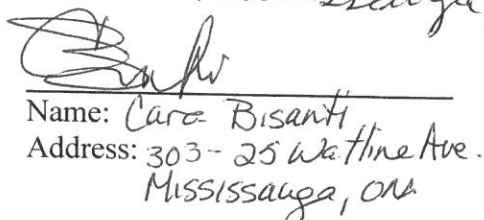 Mississauga
Name: Cara Bisanti
Address: 303-25 Watline Ave.
Mississauga, ON